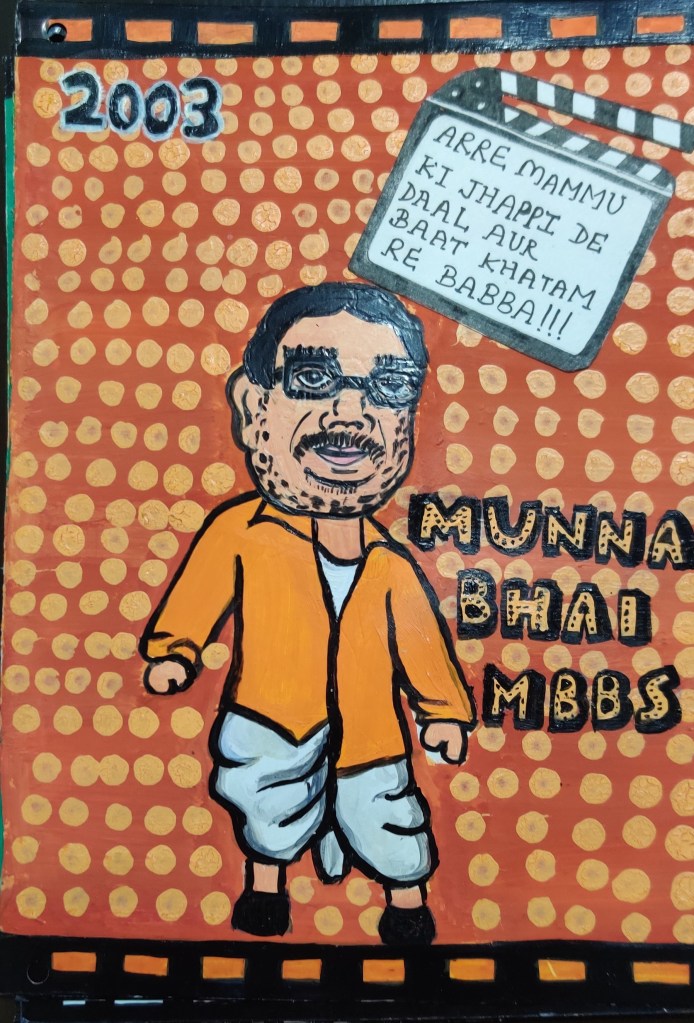 2003
ARRE MAMMU
KI JHAPPI DE
DAAL AUR
BAAT KHATAM
RE BABBA!!!
MUNNA
BHAI
MBBS